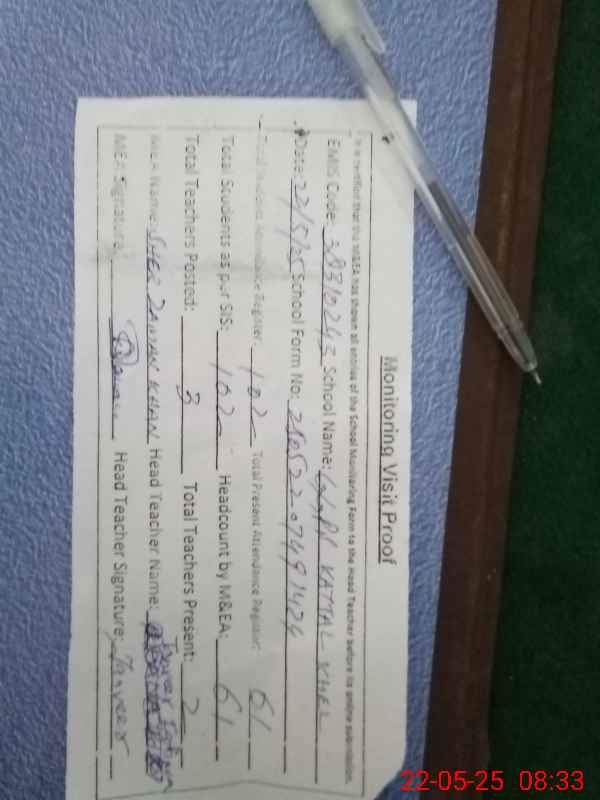 Monitoring Visit Proof
It is certified that the M&EA has shown all entries of the School Monitoring Form to the Head Teacher before its online submission.
EMIS Code: 38310243 School Name: KATTAL KHEL
Date: 22/5/25 School Form No:
Total Students Attendance Register: 102 Total Present Attendance Register: 61
Total Students as per SIS: 102 Headcount by M&EA: 61
Total Teachers Posted: 3 Total Teachers Present: 2
MEA Name: SHER ZAMAN KHAN Head Teacher Name:
MEA Signature: Head Teacher Signature: Tanveer
22-05-25 08:33